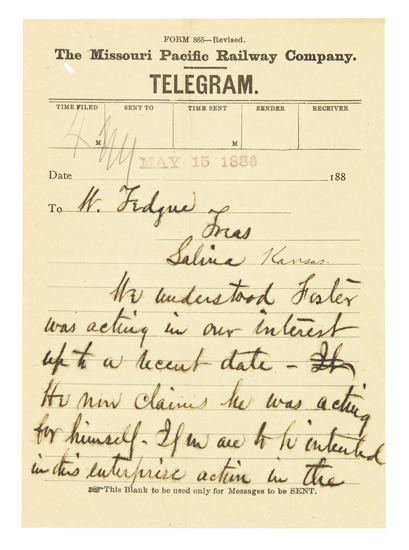 FORM 865—Revised.
The Missouri Pacific Railway Company.
TELEGRAM.
TIME FILED SENT TO TIME SENT SENDER RECEIVER
4 M M
MAY 15 1886
Date 188
To W.
Treas
Salina Kansas.
We understood Foster
was acting in our interest
up to a recent date -
He now claims he was acting
for himself - If we are to be
in this enterprise action in the
This Blank to be used only for Messages to be SENT.